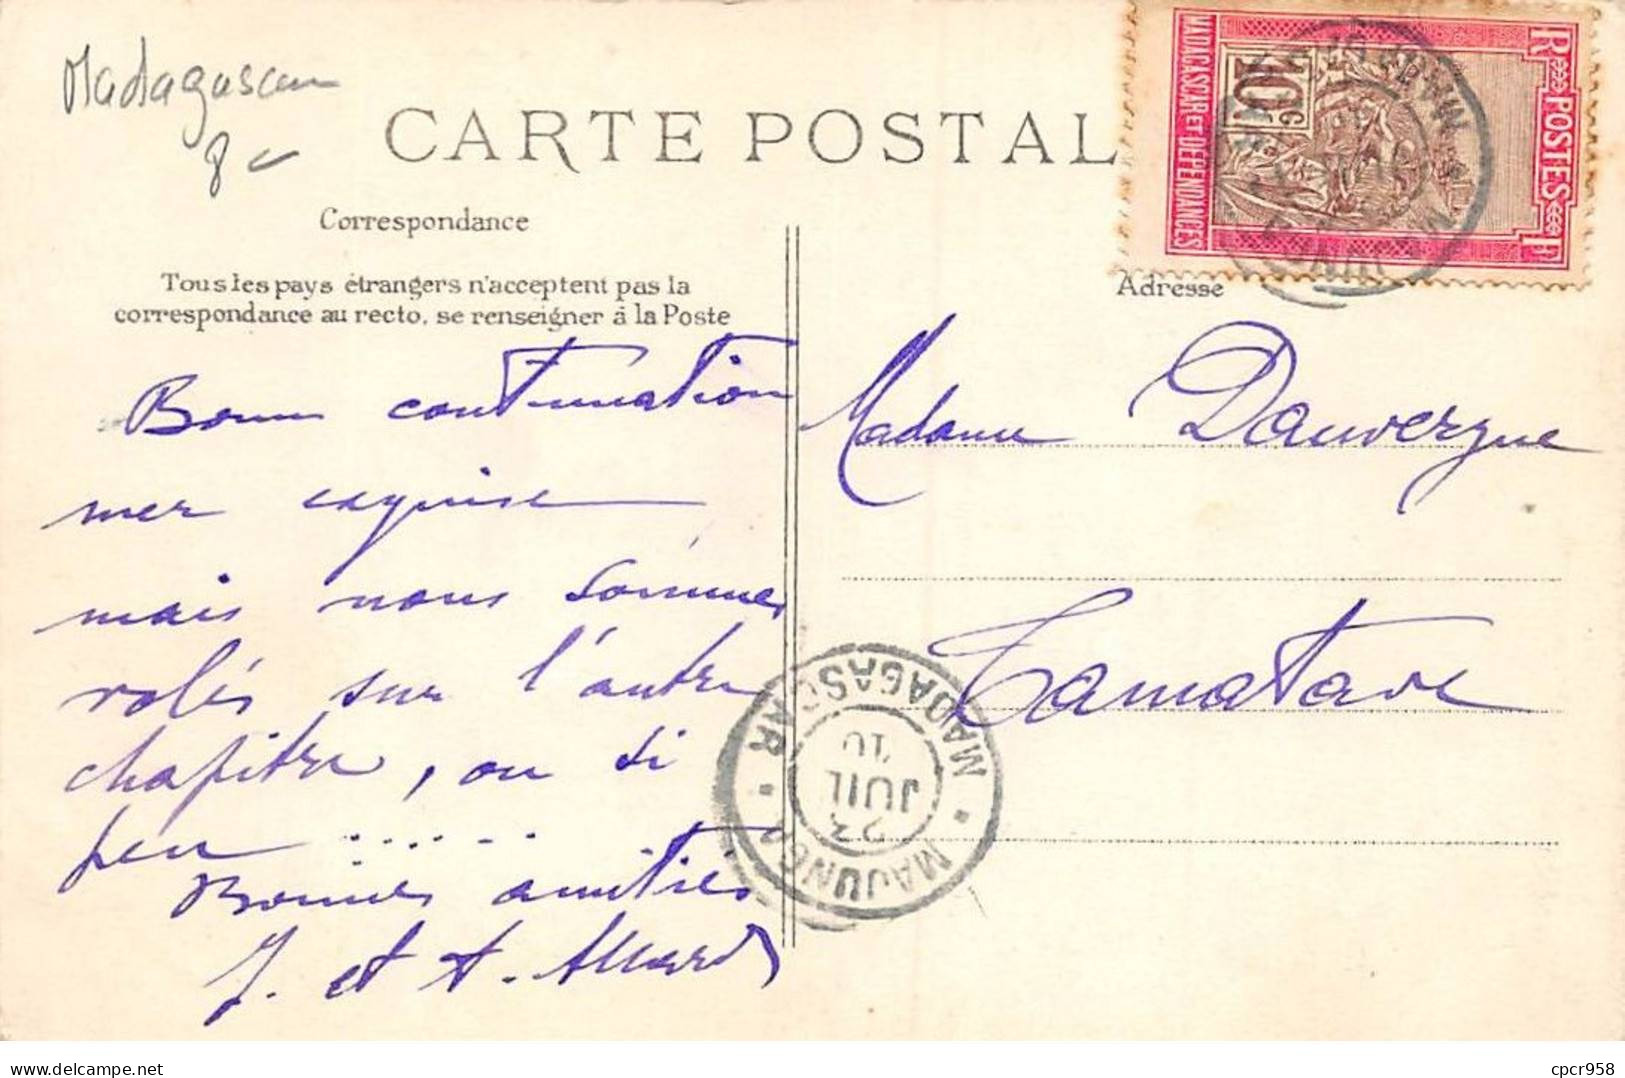 Madagascar
8-
CARTE POSTALE
Correspondance
Tous les pays étrangers n'acceptent pas la
correspondance au recto, se renseigner à la Poste
Bonne continuation
mer exquise
mais nous sommes
volés sur l'autre
chapitre, ou si
peu ......
Bonnes amitiés
J. et A. Allard
R POSTES F
10c
MADAGASCAR ET DÉPENDANCES
Adresse
Madame Dauvergne
Tamatave
MADAGASCAR
23
JUIL
10
MAJUNGA
cpcr958